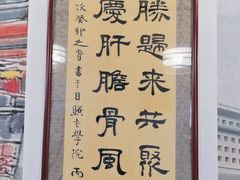 勝歸来共聚
慶肝膽骨風
次癸卯之春書于日照老学院 丙